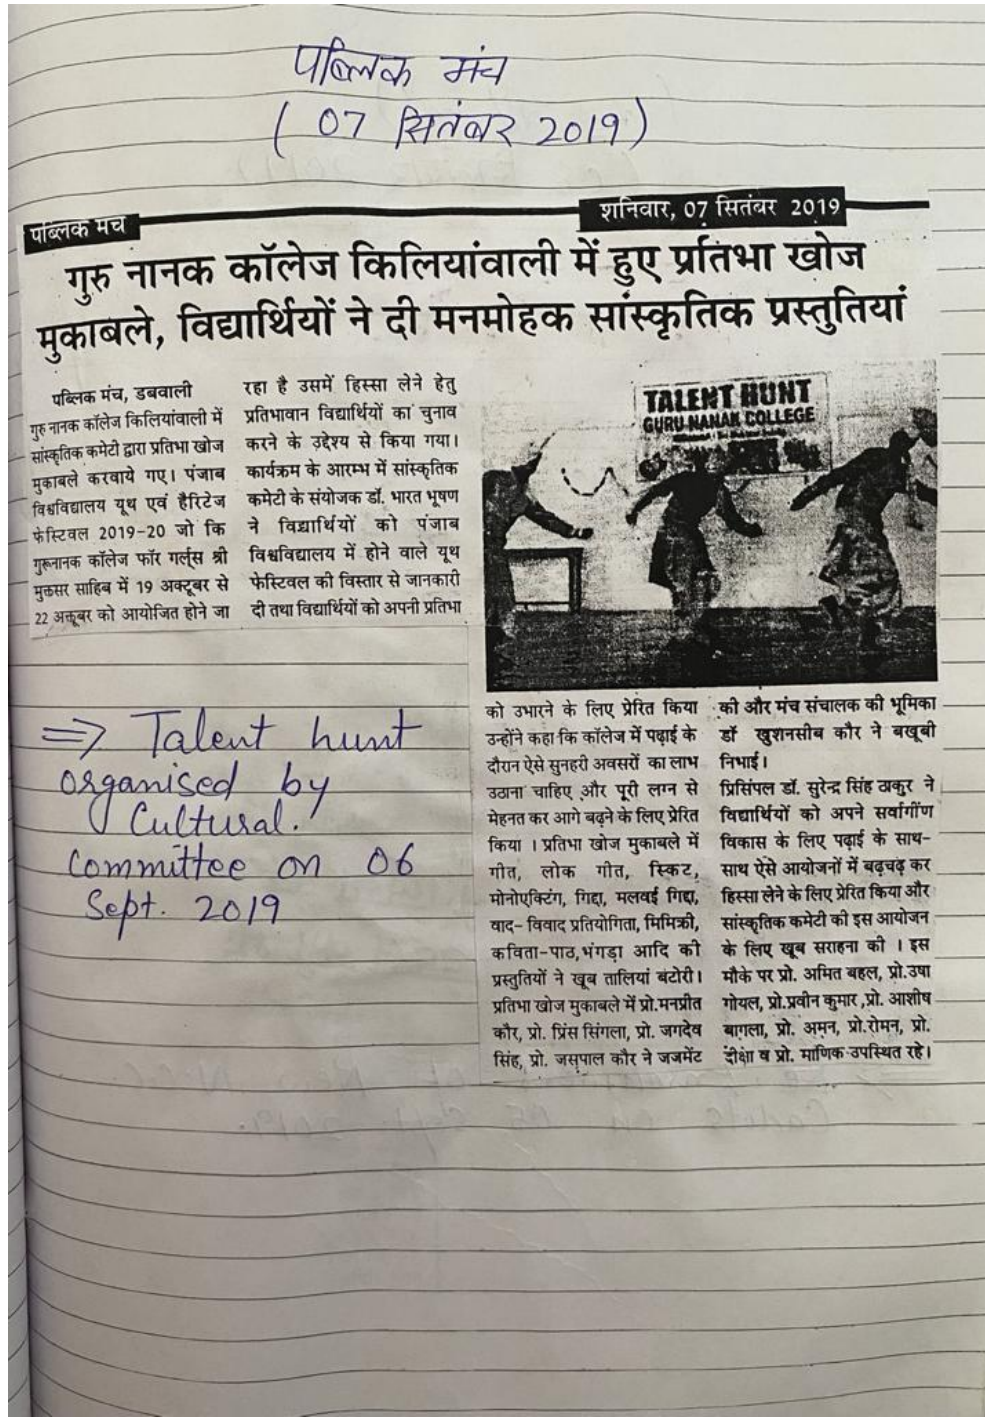 पब्लिक मंच
( 07 सितंबर 2019)
पब्लिक मच
शनिवार, 07 सितंबर 2019
गुरु नानक कॉलेज किलियांवाली में हुए प्रतिभा खोज
मुकाबले, विद्यार्थियों ने दी मनमोहक सांस्कृतिक प्रस्तुतियां
पब्लिक मंच, डबवाली
गुरु नानक कॉलेज किलियांवाली में
सांस्कृतिक कमेटी द्वारा प्रतिभा खोज
मुकाबले करवाये गए। पंजाब
विश्वविद्यालय यूथ एवं हैरिटेज
फेस्टिवल 2019-20 जो कि
गुरूनानक कॉलेज फॉर गर्ल्स श्री
मुक्तसर साहिब में 19 अक्टूबर से
22 अक्तूबर को आयोजित होने जा
रहा है उसमें हिस्सा लेने हेतु
प्रतिभावान विद्यार्थियों का चुनाव
करने के उद्देश्य से किया गया।
कार्यक्रम के आरम्भ में सांस्कृतिक
कमेटी के संयोजक डॉ. भारत भूषण
ने विद्यार्थियों को पंजाब
विश्वविद्यालय में होने वाले यूथ
फेस्टिवल की विस्तार से जानकारी
दी तथा विद्यार्थियों को अपनी प्रतिभा
TALENT HUNT
GURU NANAK COLLEGE
को उभारने के लिए प्रेरित किया
उन्होंने कहा कि कॉलेज में पढ़ाई के
दौरान ऐसे सुनहरी अवसरों का लाभ
उठाना चाहिए और पूरी लग्न से
मेहनत कर आगे बढ़ने के लिए प्रेरित
किया । प्रतिभा खोज मुकाबले में
गीत, लोक गीत, स्किट,
मोनोएक्टिंग, गिद्दा, मलवई गिद्दा,
वाद- विवाद प्रतियोगिता, मिमिक्री,
कविता-पाठ,भंगड़ा आदि की
प्रस्तुतियों ने खूब तालियां बंटोरी।
प्रतिभा खोज मुकाबले में प्रो.मनप्रीत
कौर, प्रो. प्रिंस सिंगला, प्रो. जगदेव
सिंह, प्रो. जसपाल कौर ने जजमेंट
की और मंच संचालक की भूमिका
डॉ खुशनसीब कौर ने बखूबी
निभाई।
प्रिसिंपल डॉ. सुरेन्द्र सिंह ठाकुर ने
विद्यार्थियों को अपने सर्वागीण
विकास के लिए पढ़ाई के साथ-
साथ ऐसे आयोजनों में बढ़चढ़ कर
हिस्सा लेने के लिए प्रेरित किया और
सांस्कृतिक कमेटी की इस आयोजन
के लिए खूब सराहना की । इस
मौके पर प्रो. अमित बहल, प्रो.उषा
गोयल, प्रो.प्रवीन कुमार ,प्रो. आशीष
बागला, प्रो. अमन, प्रो.रोमन, प्रो.
दीक्षा व प्रो. माणिक उपस्थित रहे।
⇒ Talent hunt
organised by
Cultural.
Committee on 06
Sept. 2019